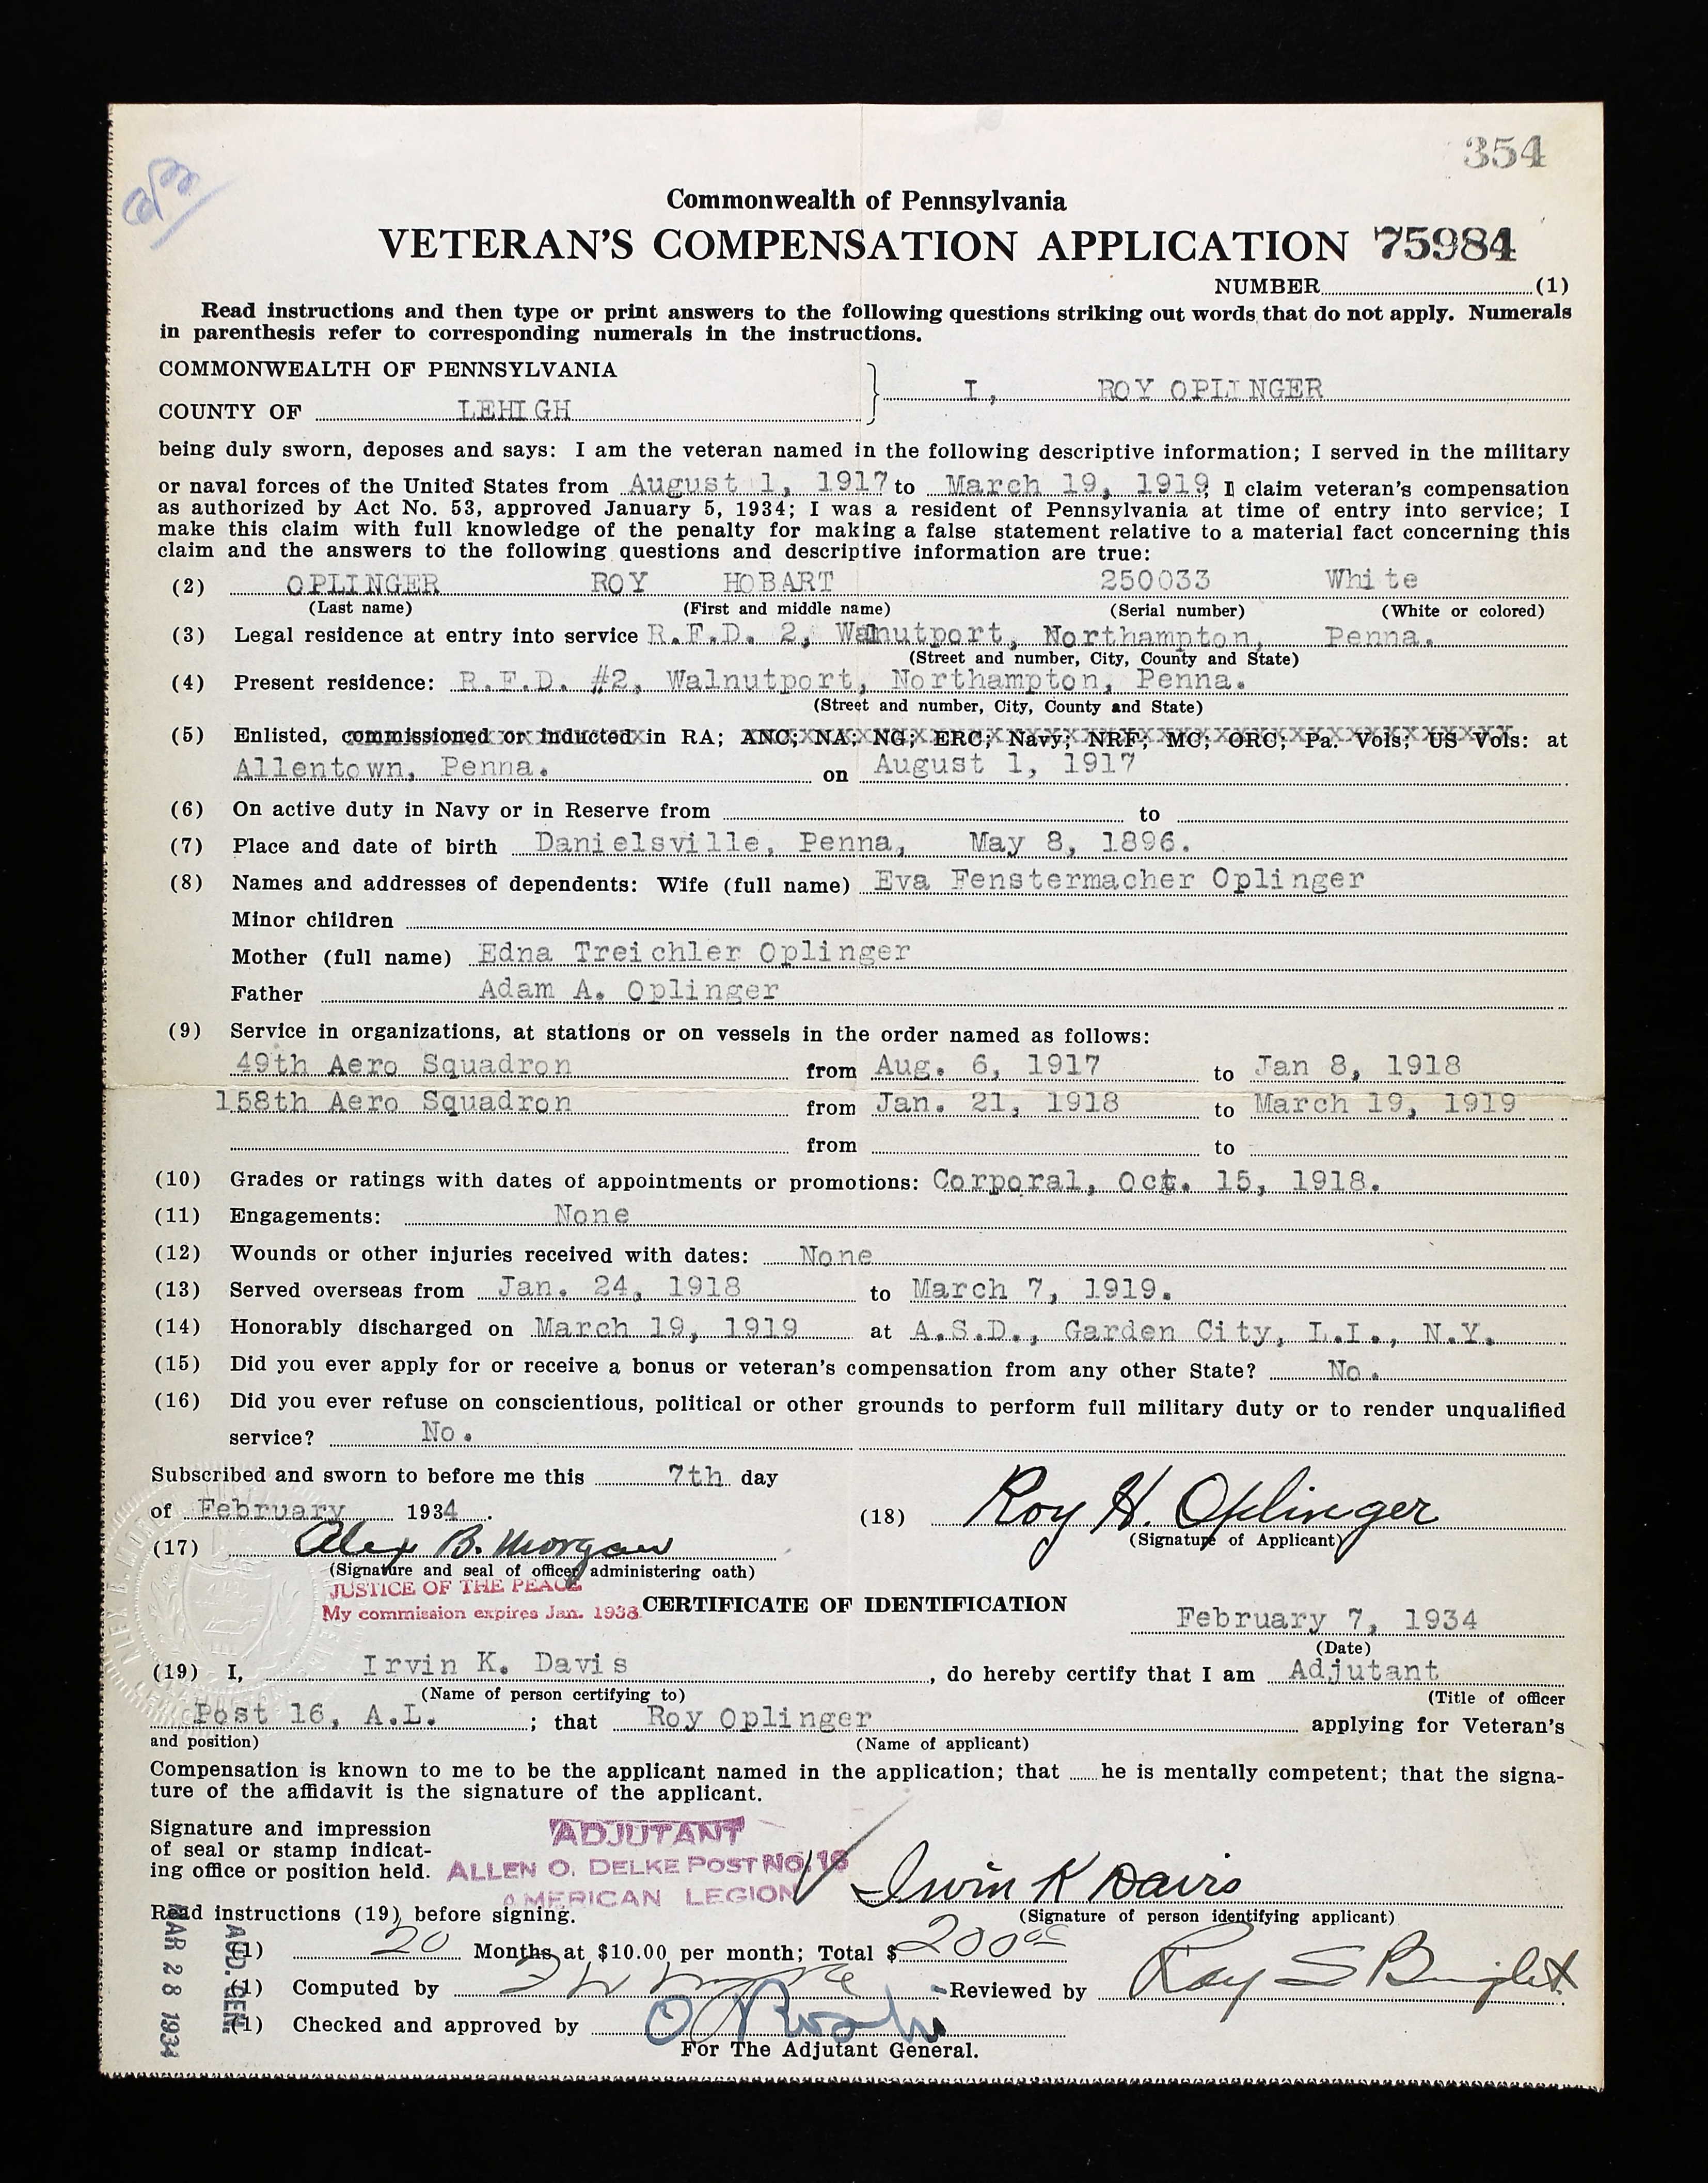 354
Commonwealth of Pennsylvania
VETERAN'S COMPENSATION APPLICATION 75984
NUMBER (1)
Read instructions and then type or print answers to the following questions striking out words that do not apply. Numerals
in parenthesis refer to corresponding numerals in the instructions.
COMMONWEALTH OF PENNSYLVANIA
I, ROY OPLINGER
COUNTY OF LEHIGH
being duly sworn, deposes and says: I am the veteran named in the following descriptive information; I served in the military
or naval forces of the United States from August 1, 1917 to March 19, 1919; I claim veteran's compensation
as authorized by Act No. 53, approved January 5, 1934; I was a resident of Pennsylvania at time of entry into service; I
make this claim with full knowledge of the penalty for making a false statement relative to a material fact concerning this
claim and the answers to the following questions and descriptive information are true:
(2) OPLINGER ROY HOBART 250033 White
(Last name) (First and middle name) (Serial number) (White or colored)
(3) Legal residence at entry into service R.F.D. 2, Walnutport, Northampton, Penna.
(Street and number, City, County and State)
(4) Present residence: R.F.D. #2, Walnutport, Northampton, Penna.
(Street and number, City, County and State)
(5) Enlisted, commissioned or inducted in RA; ANC; NA; NG; ERC; Navy; NRF; MC; ORC; Pa. Vols; US Vols: at
Allentown, Penna. on August 1, 1917
(6) On active duty in Navy or in Reserve from to
(7) Place and date of birth Danielsville, Penna, May 8, 1896.
(8) Names and addresses of dependents: Wife (full name) Eva Fenstermacher Oplinger
Minor children
Mother (full name) Edna Treichler Oplinger
Father Adam A. Oplinger
(9) Service in organizations, at stations or on vessels in the order named as follows:
49th Aero Squadron from Aug. 6, 1917 to Jan 8, 1918
158th Aero Squadron from Jan. 21, 1918 to March 19, 1919
from to
(10) Grades or ratings with dates of appointments or promotions: Corporal, Oct. 15, 1918.
(11) Engagements: None
(12) Wounds or other injuries received with dates: None
(13) Served overseas from Jan. 24, 1918 to March 7, 1919.
(14) Honorably discharged on March 19, 1919 at A.S.D., Garden City, L.I., N.Y.
(15) Did you ever apply for or receive a bonus or veteran's compensation from any other State? No.
(16) Did you ever refuse on conscientious, political or other grounds to perform full military duty or to render unqualified
service? No.
Subscribed and sworn to before me this 7th day
of February 1934.
(18) Roy H. Oplinger
(Signature of Applicant)
(17) Alex B. Morgan
(Signature and seal of officer administering oath)
JUSTICE OF THE PEACE
My commission expires Jan. 1938
CERTIFICATE OF IDENTIFICATION
February 7, 1934
(Date)
(19) I, Irvin K. Davis, do hereby certify that I am Adjutant
(Name of person certifying to) (Title of officer
Post 16, A.L.; that Roy Oplinger applying for Veteran's
and position) (Name of applicant)
Compensation is known to me to be the applicant named in the application; that he is mentally competent; that the signa-
ture of the affidavit is the signature of the applicant.
Signature and impression
of seal or stamp indicat-
ing office or position held.
ADJUTANT
ALLEN O. DELKE POST NO. 16
AMERICAN LEGION
Irvin K Davis
Read instructions (19) before signing.
(Signature of person identifying applicant)
(1) 20 Months at $10.00 per month; Total $200.00
(1) Computed by Reviewed by Ray S
(1) Checked and approved by
For The Adjutant General.
AUD. GEN.
MAR 28 1934